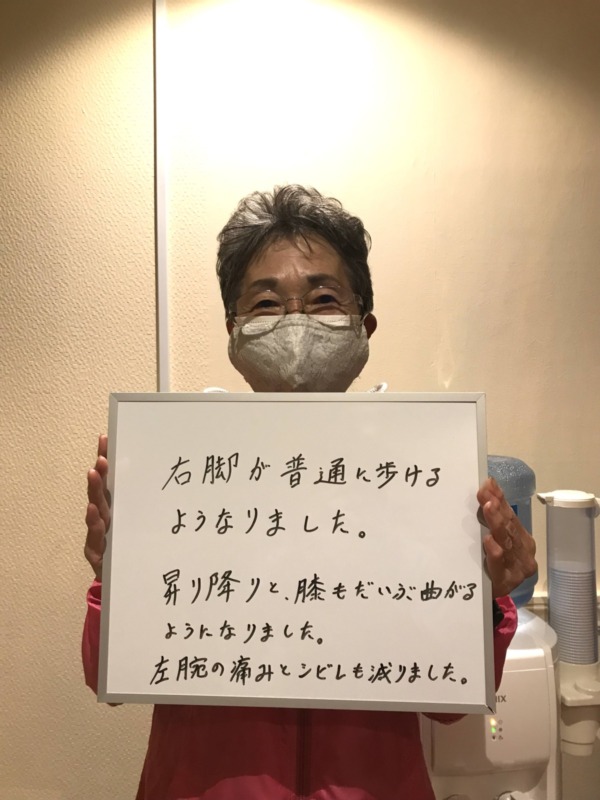 右脚が普通に歩ける
ようなりました。
昇り降りと、膝もだいぶ曲がる
ようになりました。
左腕の痛みとシビレも減りました。